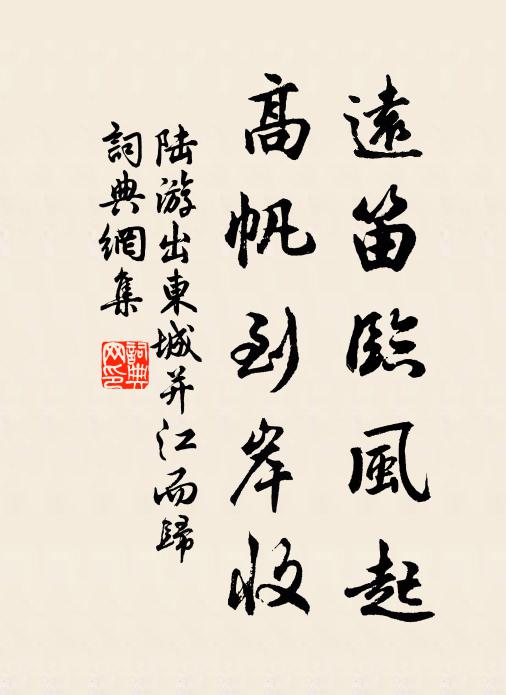 遠笛臨風起
高帆到岸收
陸游出東城并江而歸
詞典網集
詞典網印